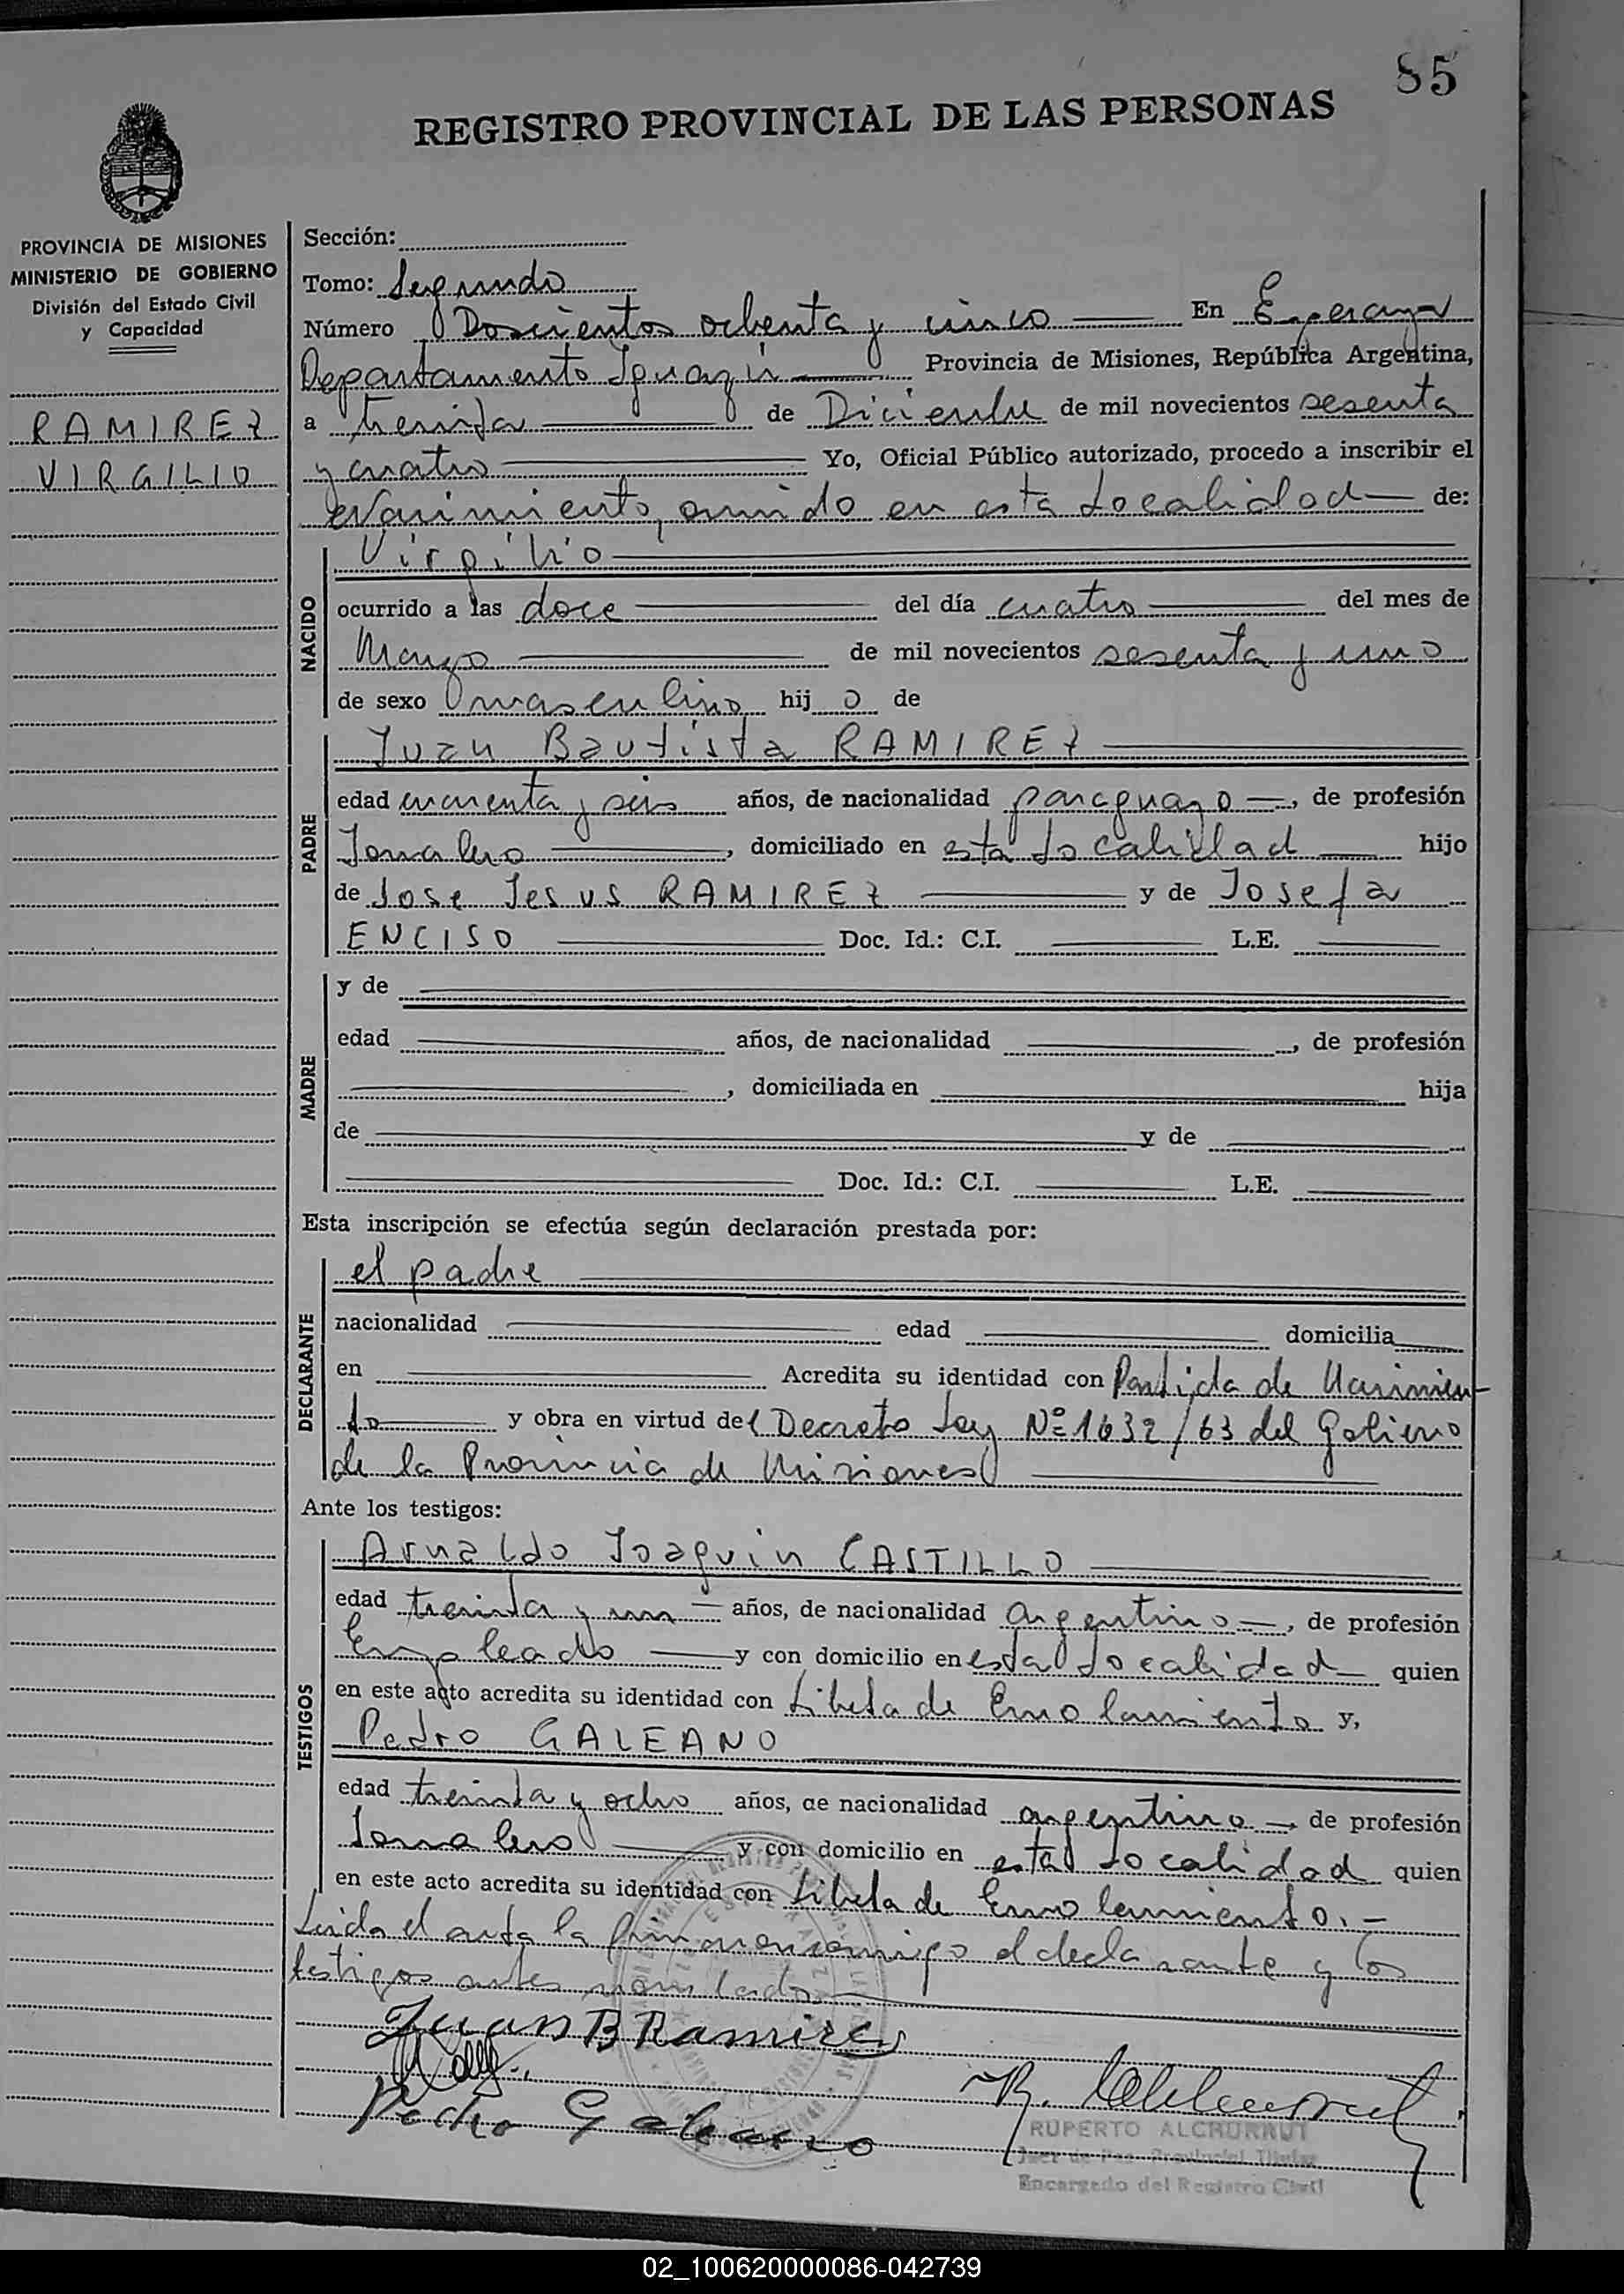 85
REGISTRO PROVINCIAL DE LAS PERSONAS
PROVINCIA DE MISIONES
MINISTERIO DE GOBIERNO
División del Estado Civil
y Capacidad
RAMIREZ
VIRGILIO
Sección:
Tomo: Segundo
Número Doscientos ochenta y cinco En Esperanza
Departamento Iguazú Provincia de Misiones, República Argentina,
a treinta de Diciembre de mil novecientos sesenta
y cuatro Yo, Oficial Público autorizado, procedo a inscribir el
Nacimiento, ocurrido en esta Localidad de:
NACIDO
Virgilio
ocurrido a las doce del día cuatro del mes de
Marzo de mil novecientos sesenta y uno
de sexo masculino hijo de
PADRE
Juan Bautista RAMIREZ
edad cuarenta y seis años, de nacionalidad paraguayo, de profesión
Jornalero, domiciliado en esta Localidad hijo
de Jose Jesus RAMIREZ y de Josefa
ENCISO Doc. Id.: C.I. L.E.
MADRE
y de
edad años, de nacionalidad , de profesión
, domiciliada en hija
de y de
Doc. Id.: C.I. L.E.
Esta inscripción se efectúa según declaración prestada por:
DECLARANTE
el padre
nacionalidad edad domicilia
en Acredita su identidad con Partida de Nacimien-
to y obra en virtud del Decreto Ley Nº 1632/63 del Gobierno
de la Provincia de Misiones
Ante los testigos:
TESTIGOS
Arnaldo Joaquin CASTILLO
edad treinta y un años, de nacionalidad argentino, de profesión
Empleado y con domicilio en esta Localidad quien
en este acto acredita su identidad con Libreta de Enrolamiento y,
Pedro GALEANO
edad treinta y ocho años, de nacionalidad argentino, de profesión
Jornalero y con domicilio en esta Localidad quien
en este acto acredita su identidad con Libreta de Enrolamiento.-
Leida el acta la firman conmigo el declarante y los
testigos antes nombrados
Juan B Ramirez
Pedro Galeano
RUPERTO ALCHURRUT
Juez de Paz Provincial Titular
Encargado del Registro Civil
02_100620000086-042739